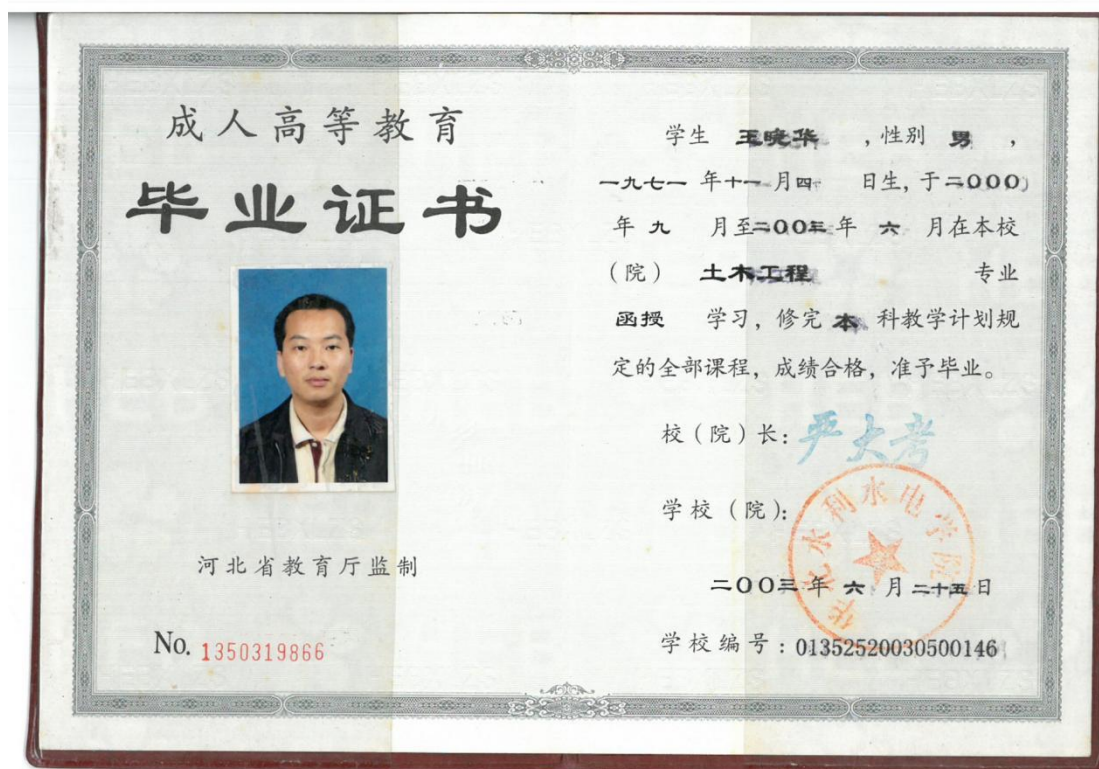 成人高等教育
毕业证书
河北省教育厅监制
No. 1350319866
学生 王晓华 ，性别 男 ，
一九七一 年十一月四 日生，于二000
年 九 月至二00三年 六 月在本校
（院） 土木工程 专业
函授 学习，修完 本 科教学计划规
定的全部课程，成绩合格，准予毕业。
校（院）长：严大考
学校（院）：
华北水利水电学院
二00三年 六 月二十五日
学校编号：01352520030500146